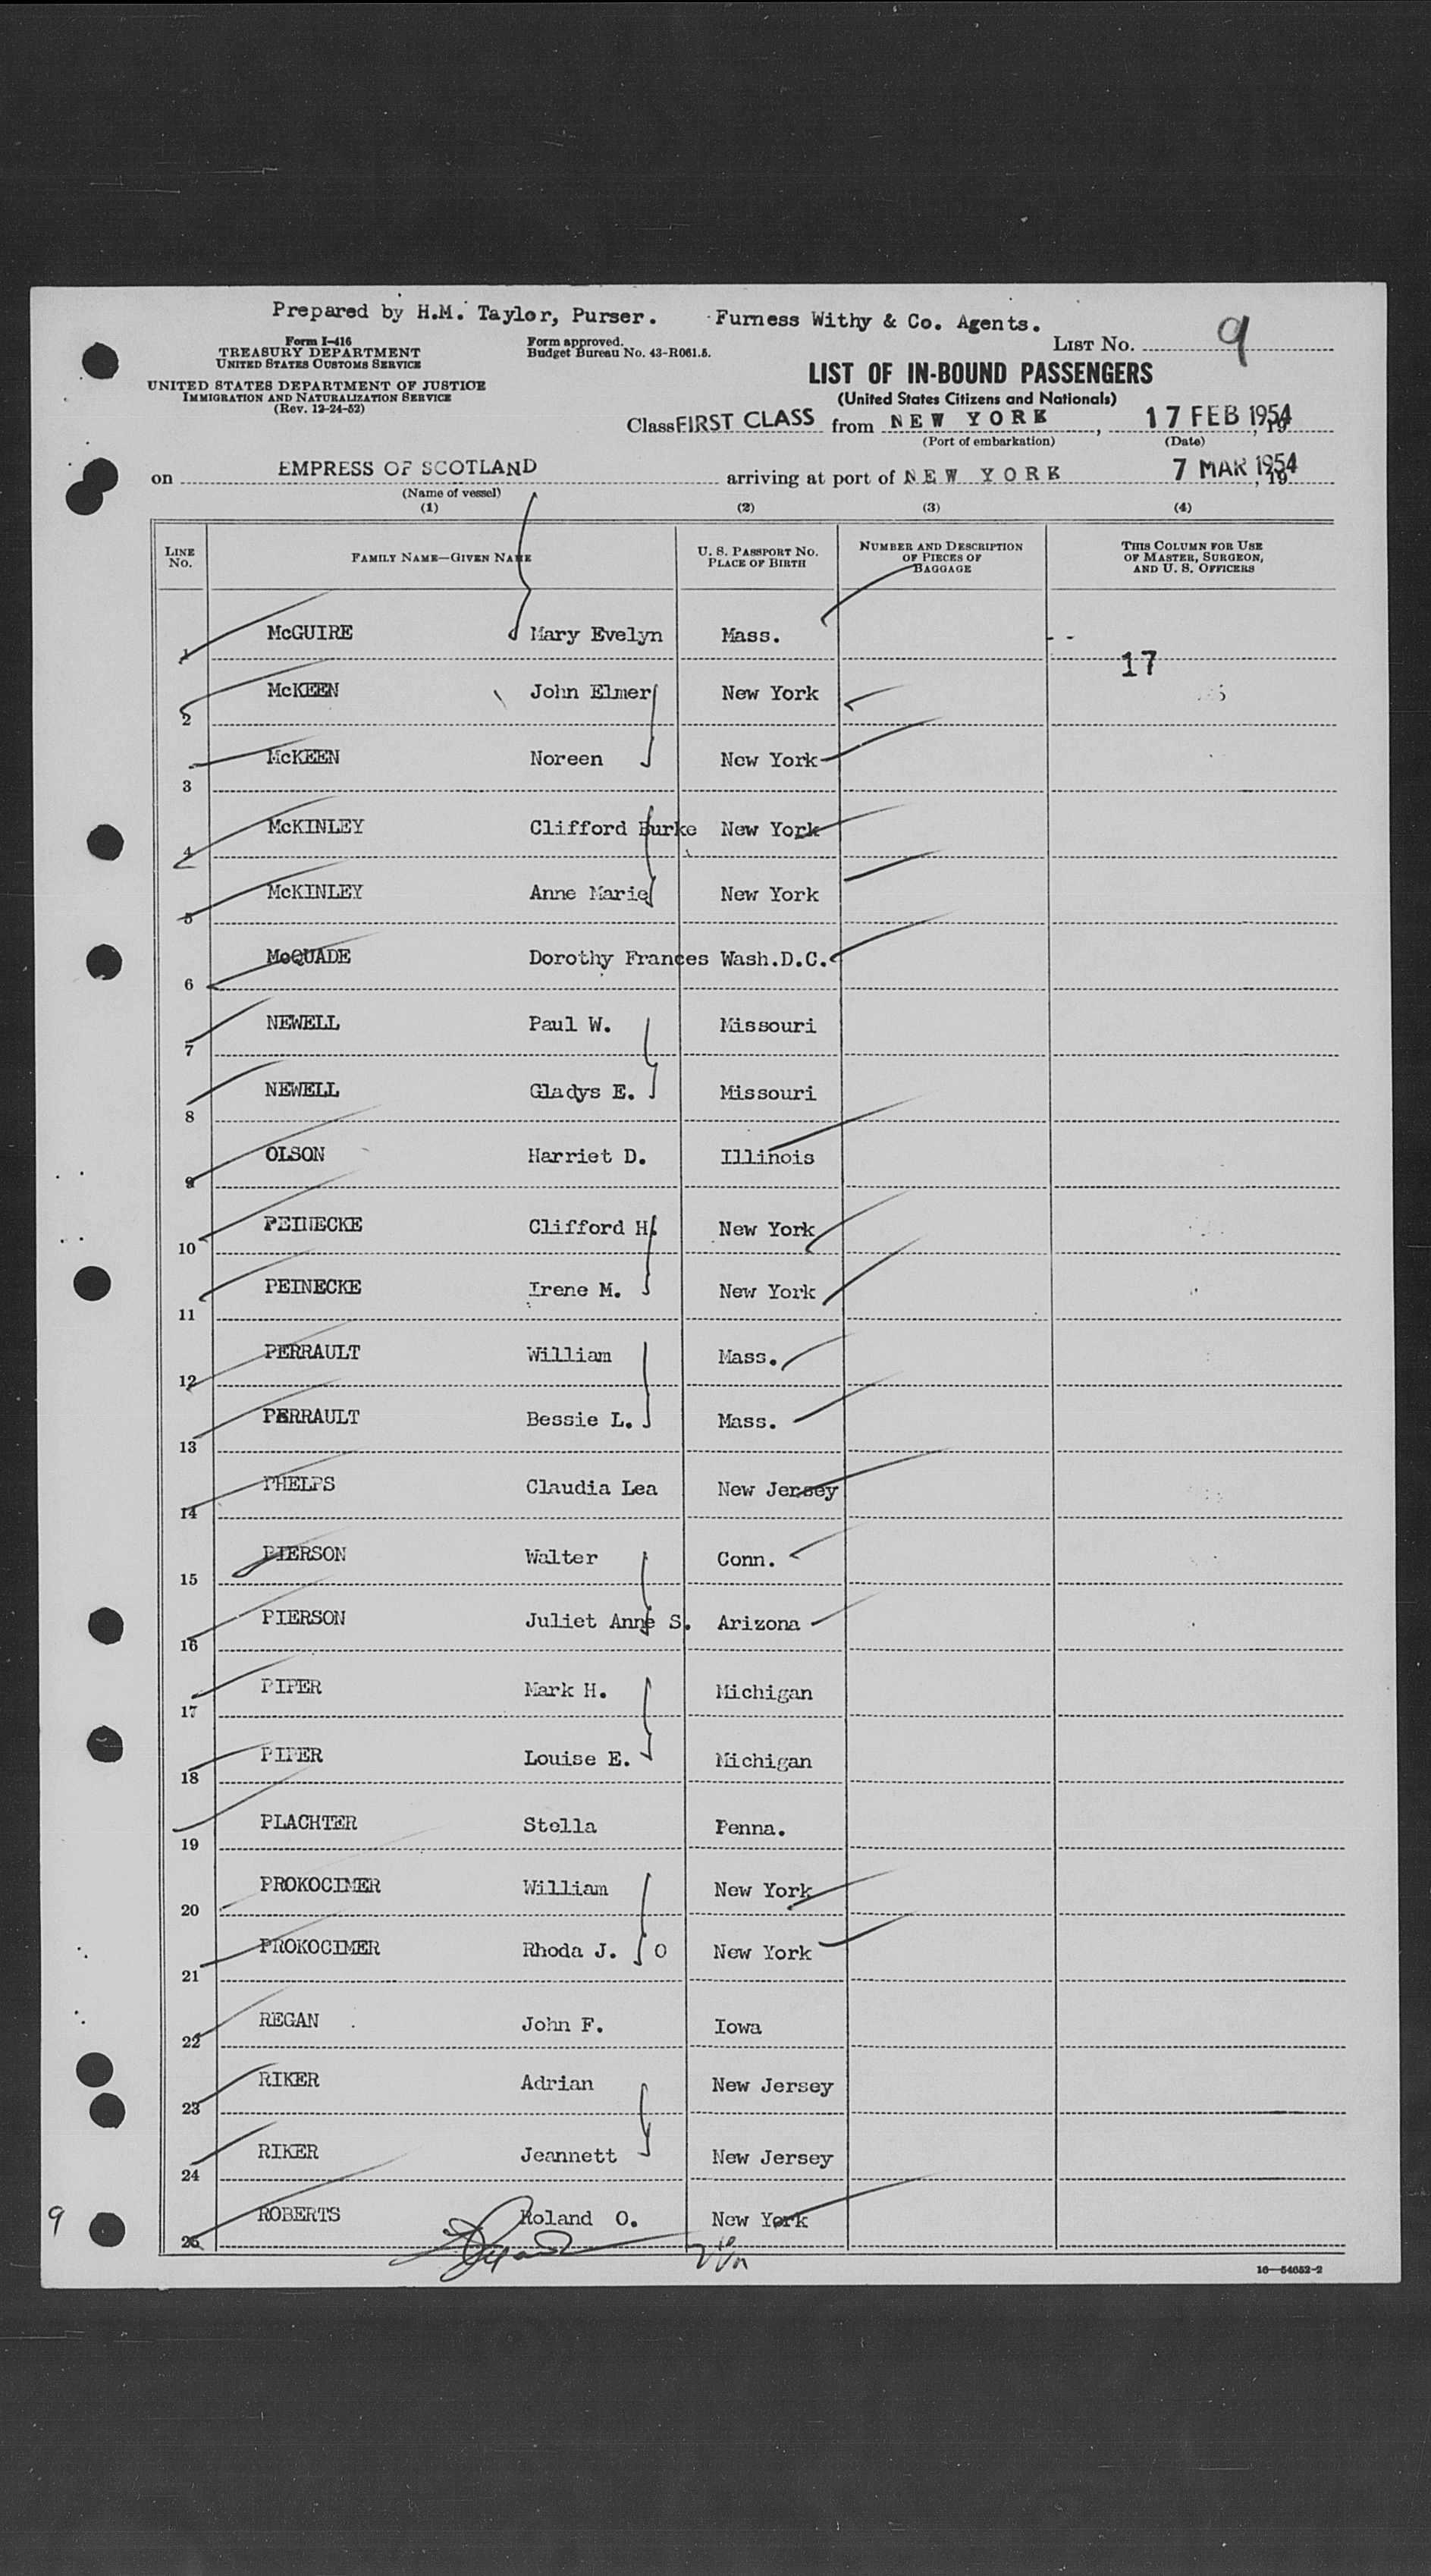 Prepared by H.M. Taylor, Purser. Furness Withy & Co. Agents.
Form I-416
TREASURY DEPARTMENT
UNITED STATES CUSTOMS SERVICE
UNITED STATES DEPARTMENT OF JUSTICE
IMMIGRATION AND NATURALIZATION SERVICE
(Rev. 12-24-52)
Form approved.
Budget Bureau No. 43-R061.5.
LIST No. 9
LIST OF IN-BOUND PASSENGERS
(United States Citizens and Nationals)
Class FIRST CLASS from NEW YORK, 17 FEB 1954, 19
(Port of embarkation) (Date)
on EMPRESS OF SCOTLAND arriving at port of NEW YORK 7 MAR 1954, 19
(Name of vessel)
(1) (2) (3) (4)
LINE NO. FAMILY NAME—GIVEN NAME U. S. PASSPORT NO. PLACE OF BIRTH NUMBER AND DESCRIPTION OF PIECES OF BAGGAGE THIS COLUMN FOR USE OF MASTER, SURGEON, AND U. S. OFFICERS
1 McGUIRE Mary Evelyn Mass.
17
2 McKEEN John Elmer New York
3 McKEEN Noreen New York
4 McKINLEY Clifford Burke New York
5 McKINLEY Anne Marie New York
6 McQUADE Dorothy Frances Wash.D.C.
7 NEWELL Paul W. Missouri
8 NEWELL Gladys E. Missouri
9 OLSON Harriet D. Illinois
10 PEINECKE Clifford H. New York
11 PEINECKE Irene M. New York
12 PERRAULT William Mass.
13 PERRAULT Bessie L. Mass.
14 PHELPS Claudia Lea New Jersey
15 PIERSON Walter Conn.
16 PIERSON Juliet Anne S. Arizona
17 PIPER Mark H. Michigan
18 PIPER Louise E. Michigan
19 PLACHTER Stella Penna.
20 PROKOCIMER William New York
21 PROKOCIMER Rhoda J. O New York
22 REGAN John F. Iowa
23 RIKER Adrian New Jersey
24 RIKER Jeannett New Jersey
25 ROBERTS Roland O. New York
9
16—54652-2